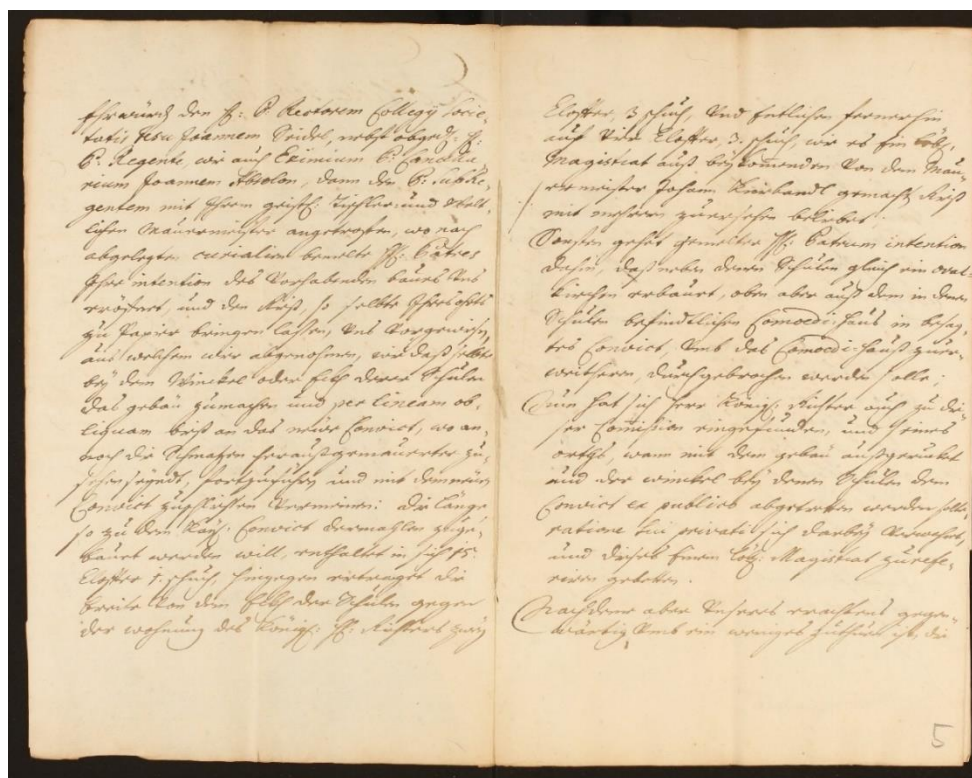 Ehrwürd: den H: P. Rectorem Collegij Socie-
tatis Jesu Joannem Seidel, nebst obged: H:
P. Regente, wie auch Eximium P: Canda-
rium Joannem Absolon, dann den P: SubRe-
gentem mit Ihrem geistl: Tischler und Welt-
lichen Mauermeister angetroffen, wo nach
abgelegten curialien bemelte H: Patres
Ihre intention des Vorhabenden baues Uns
eröffnet, und den Riß, so selbte
zu Papier bringen lassen, Uns Vorgewiesen,
aus welchem wier abgenohmen, wie daß selbte
bey dem Winckel oder Eckh derer Schulen
das gebäu zumachen und per lineam ob-
liquam biß an das neue Convict, wo an
noch die Schmatzen heraußgemauerter zu
sehen seyndt, fortzuführen und mit dem neüen
Convict zuschliessen Vermeinen: die Länge
so zu dem Kay: Convict dermahlen zuge-
bauet werden will, enthaltet in sich 15
Claffter 1. schuch, hingegen ertraget die
breite von dem Eckh der Schulen gegen
der wohnung des Königl: H: Richters zwey
Claffter, 3 schuch, Und Endlichen fernerhin
auch Vier Claffter, 3. schuch, wie es Ein Löb:
Magistrat auß beykommenden Von dem Mau-
rermeister Johann gemacht Riß
mit mehrern zuersehen beliebet.
Sonsten gehet gemelter H: Patrum intention
dahin, daß neben denen Schulen gleich ein oval:
kirchen erbauet, oben aber auß dem in denen
Schulen befindtlichen Comoedi-Hauß in besag-
tes Convict, Umb das Comoedi-Hauß zuer-
weithern, durchgebrochen werden solle;
Nun hat sich Herr König: Richter auch zu die-
ser Com̄ission eingefunden, und seines
orths, wann mit dem gebäu außgeruckt
und der winckel bey denen Schulen dem
Convict ex publico abgetretten werden solle
ratione sui privati sich darbey Verwahrt,
und dieses Einem Löb: Magistrat zurefe-
riren gebeten.
Nachdeme aber Unseres erachtens gegen-
wärtig Umb ein weniges zuthuen ist, die
5